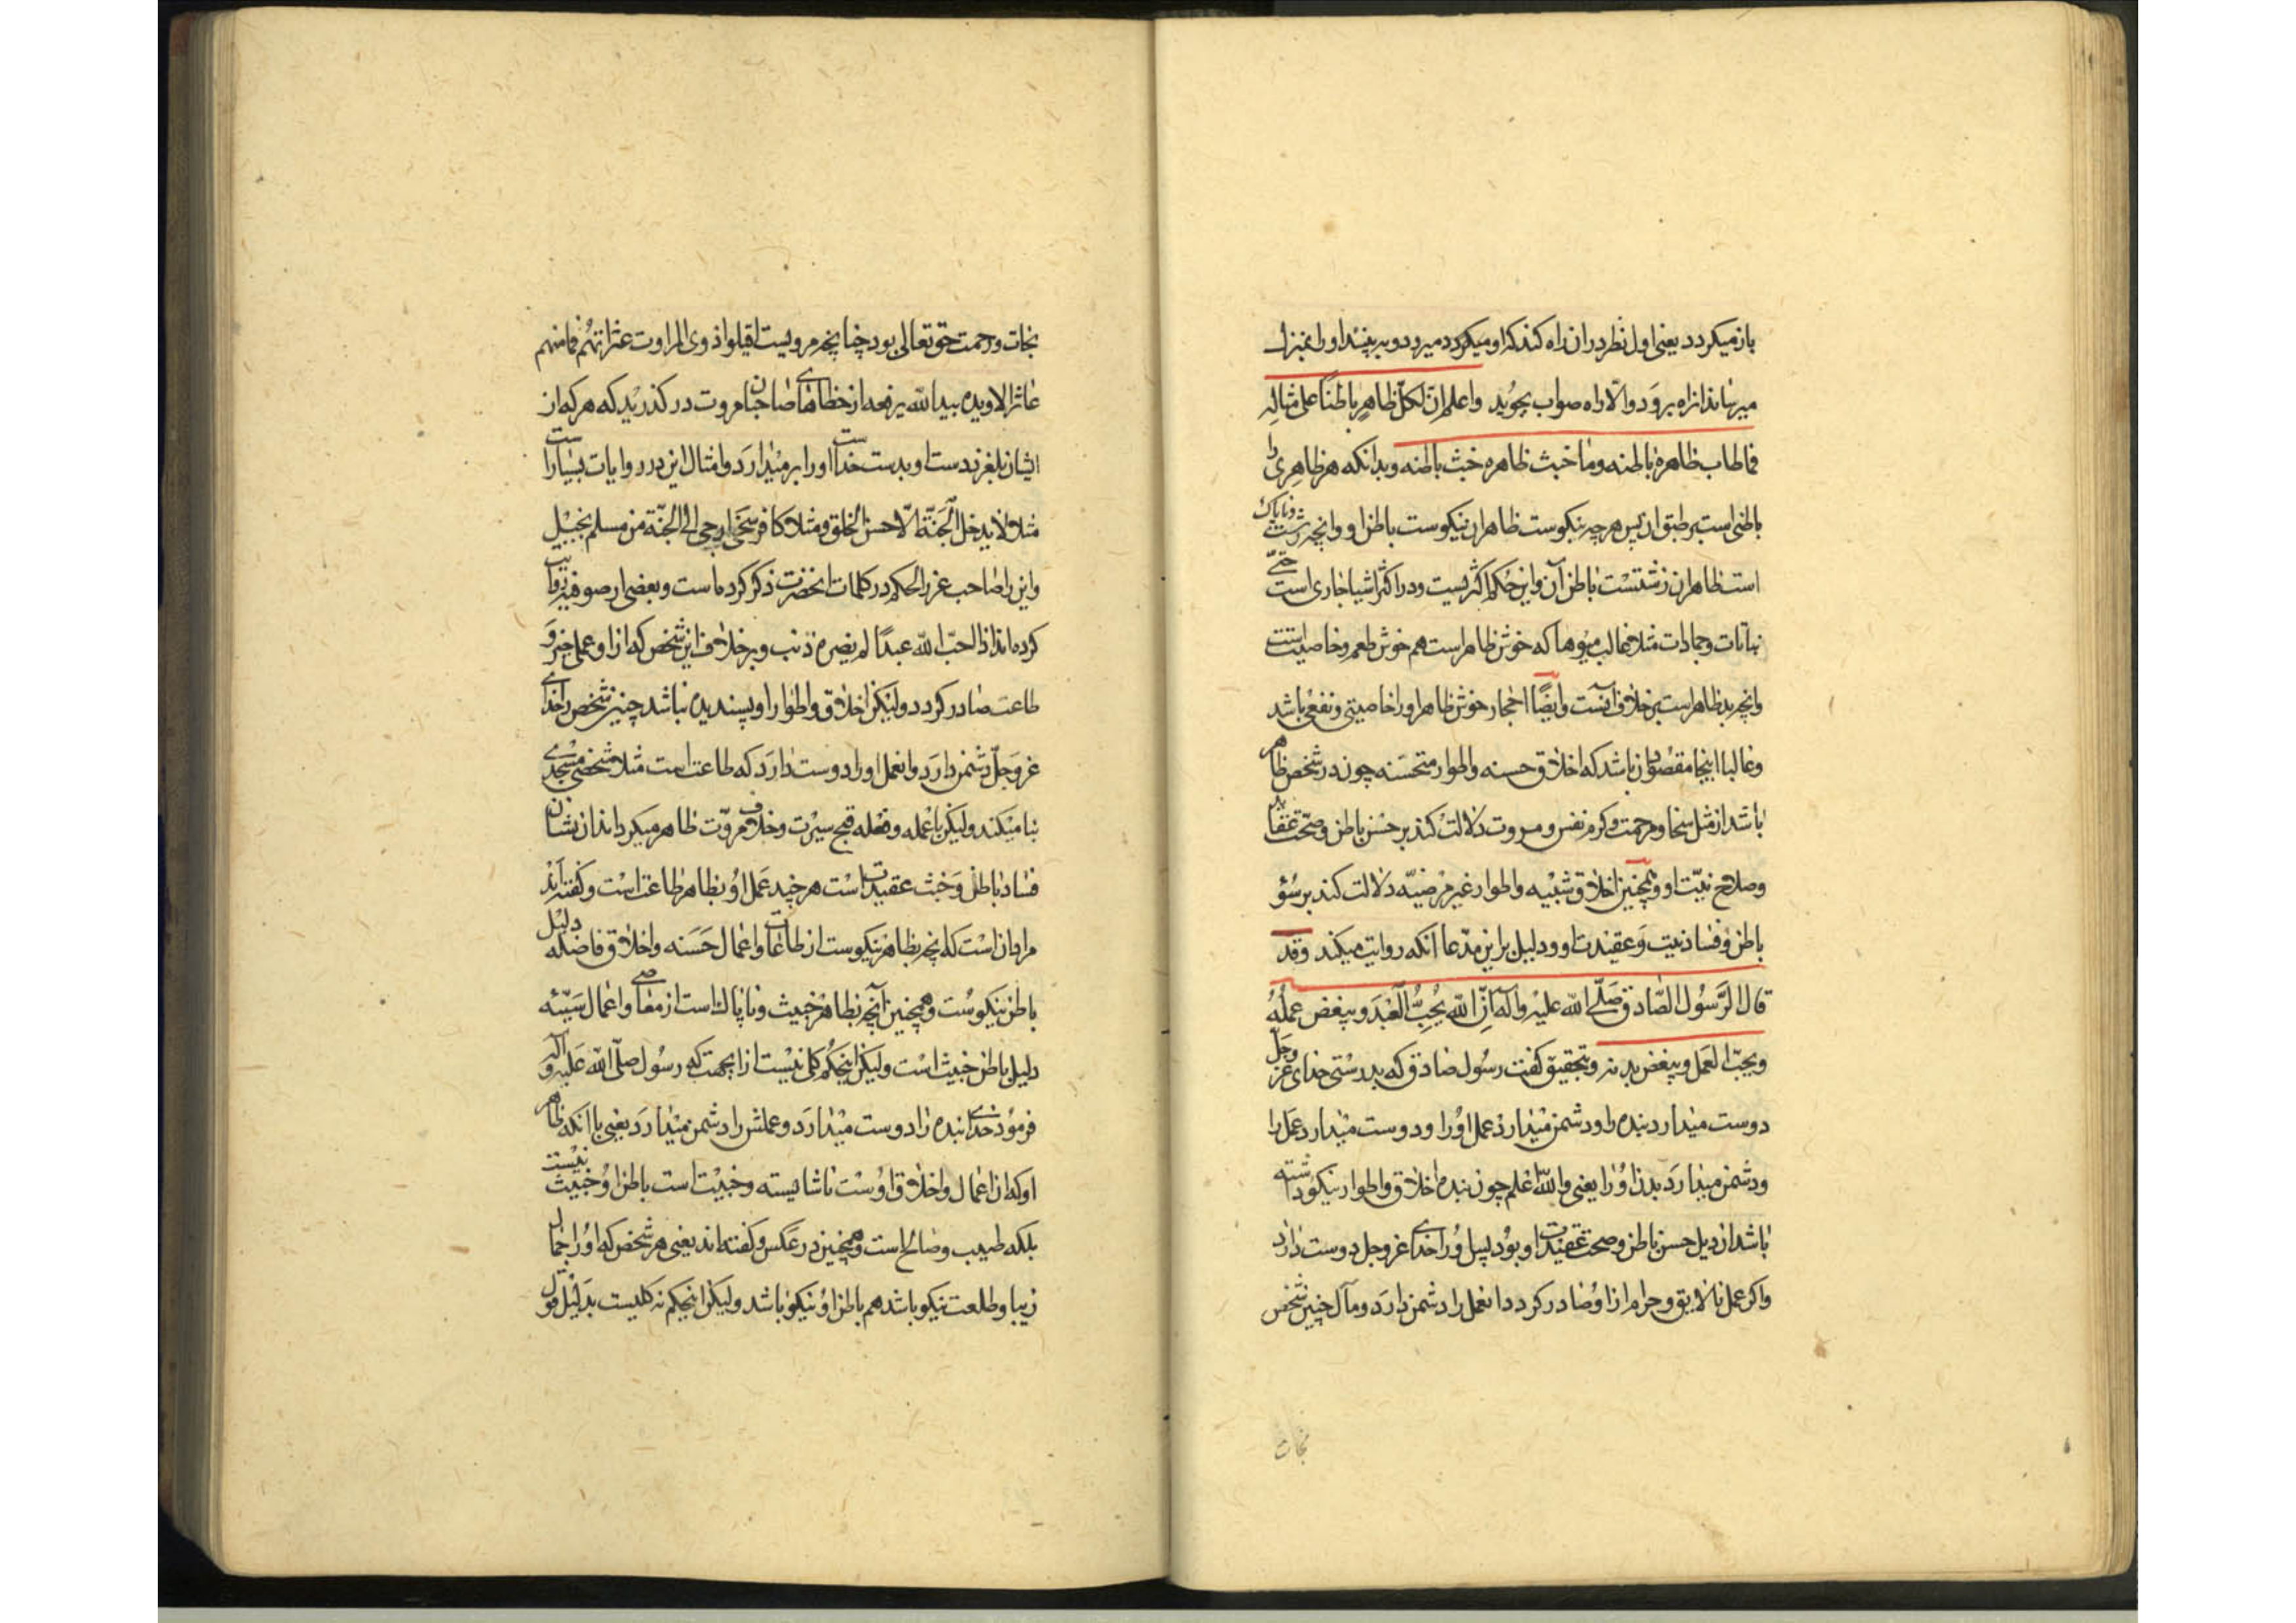 باز میگردد یعنی اول نظر در ان راه کند که او میگردد میرود و ببیند او را بمنزل
میرساند از راه برود والا راه صواب بجوید واعلم ان لکل ظاهر باطنا علی مثاله
فما طاب ظاهره طاب باطنه وما خبث ظاهره خبث باطنه وبدانکه هر ظاهری را
باطنی است بر طبق ان پس هر چه نیکوست ظاهر ان نیکوست باطن او و انچه زشت و ناپاک
است ظاهر ان زشتست باطن آن واین حکم اکثریست ودر اکثر اشیا جاری است حتی
نباتات وجمادات مثلا غالب میوها که خوش ظاهر است هم خوش طعم وخاصیت است
وانچه بد ظاهر است بر خلاف آنست وایضًا احجار خوش ظاهر او را خاصیتی ونفعی باشد
وغالبا اینجا مقصود ان باشد که اخلاق حسنه واطوار مستحسنه چون در شخص ظاهر
باشد از مثل سخا ومرحمت وکرم نفس ومروت دلالت کند بر حسن باطن وصحّت عقاید
وصلاح نیّت او وهمچنین اخلاق سیئه واطوار غیر مرضیّه دلالت کند بر سؤ
باطن وفساد نیت وعقیدت او ودلیل بر این مدّعا آنکه روایت میکند وقد
قال الرَّسُول الصّادق صَلّی الله علیه وآله اِنّ الله یُحِبُّ الْعَبْدَ ویبغض عملُهُ
ویحبّ العَمل ویبغض بدنه وبتحقیق کفت رسُول صادق که بدرستی خدای عزّ وجلّ
دوست میدارد بنده را ودشمن میدارد عمل او را ودوست میدارد عمل را
ودشمن میدارد بدن او را یعنی والله اعلم چون بنده اخلاق واطوار نیکو داشته
باشد از دلیل حسن باطن وصحت عقیدت او بود پس او را خدای عزوجل دوست دارد
واکر عمل نالایق وحرام از او صادر کردد انعمل را دشمن دارد ومآل چنین شخص
نجات
نجات ورحمت حق تعالی بود چنانچه مرویست اقیلوا ذوی المراوت عثراتهم فما منهم
عاثر الا ویده بید الله یرفعه از خطاهای صاحبان مروت در کذرید که هر که از
ایشان بلغزد دست او بدست خداست او را بر میدارد وامثال این در روایات بسیار است
مثلا لا یدخل الجَنّة الّا حسن الخلق ومثلا کافر سخی ارجی الی الجنّة من مسلم بخیل
واین را صاحب غرر الحکم در کلمات انحضرت ذکر کرده است وبعضی از صوفیه روایت
کرده‌اند اذا احبّ الله عبدًا لم یضره ذنب وبر خلاف این شخص که از او عمل خیر و
طاعت صادر کردد ولیکن اخلاق واطوار او پسندیده نباشد چنین شخص را خدای
عزوجلّ دشمن دارد وانعمل او را دوست دارد که طاعت است مثلا شخصی مسجدی
بنا میکند ولیکن با عمله وفعله قبح سیرت وخلاف مروّت ظاهر میکرداند از نشان
فساد باطن وخبث عقیدت است هر چند عمل او بظاهر طاعت است وکفته‌اند
مراد ان است که انچه بظاهر نیکوست از طاعات واعمال حَسَنه واخلاق فاضله دلیل
باطن نیکوست وهمچنین آنچه بظاهر خبیث وناپاک است از معاصی واعمال سیّئه
دلیل باطن خبیث است ولیکن اینحکم کلی نیست از اینجهت که رسُول صلّی الله علیه وآله
فرمود خدای بنده را دوست میدارد وعملش را دشمن میدارد یعنی با آنکه ظاهر
او که ان اعمال واخلاق اوست ناشایسته وخبیث است باطن او خبیث نیست
بلکه طیب وصالح است وهمچنین در عکس وکفته‌اند یعنی هر شخص که او را جمال
زیبا وطلعت نیکو باشد هم باطن او نیکو باشد ولیکن اینحکم نه کلیست بدلیل قول